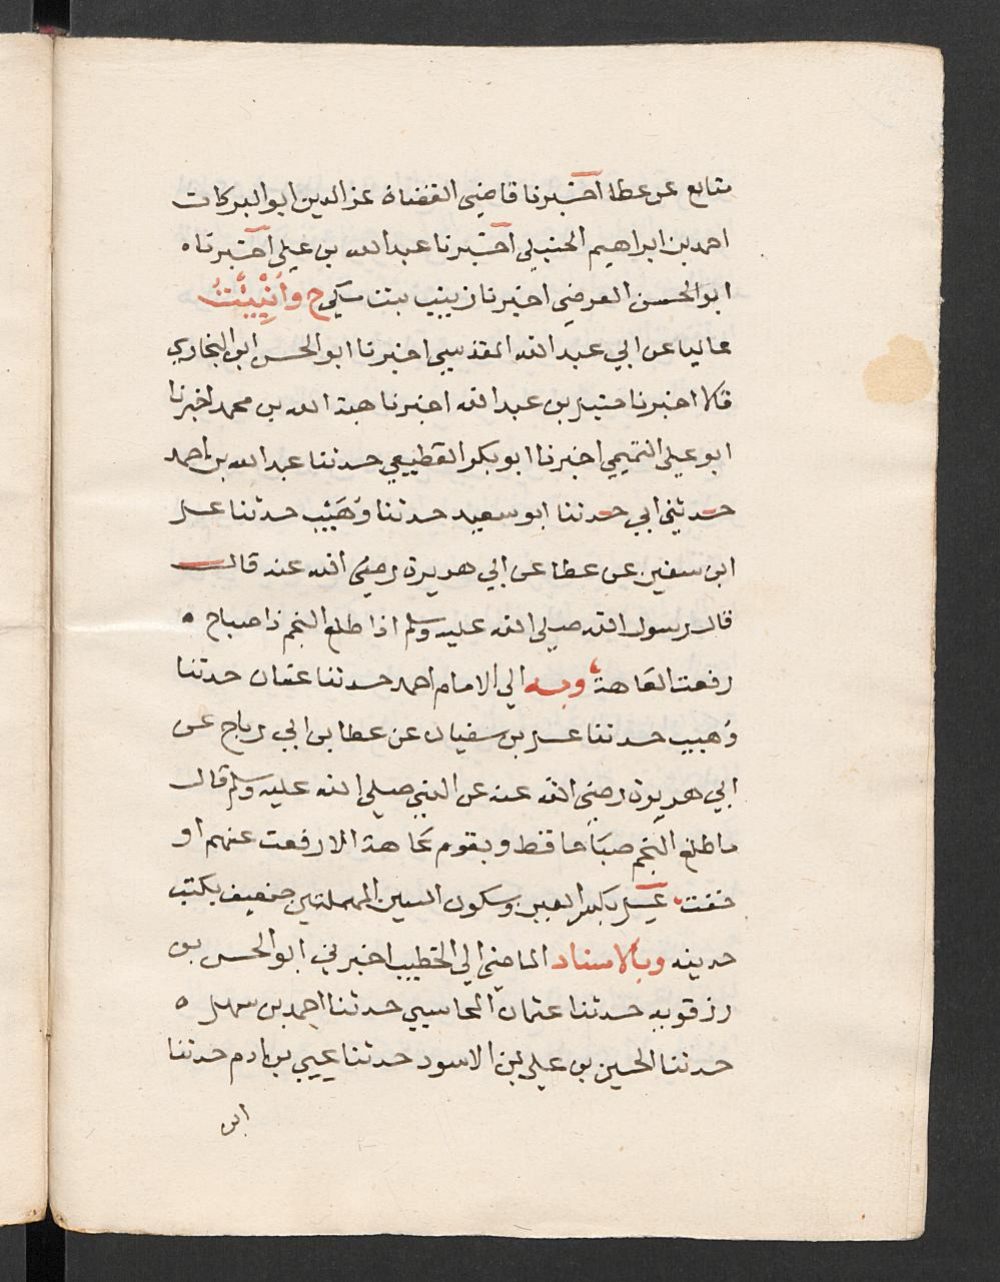 متابع عن عطا اخبرنا قاضي القضاة عز الدين ابو البركات
احمد بن ابراهيم الحنبلي اخبرنا عبد الله بن علي اخبرنا ه
ابو الحسن العرضي اخبرنا زينب بنت مكي ح وأُنْبِئْتُ
عاليا عن ابي عبد الله المقدسي اخبرنا ابو الحسن ابن البخاري
قالا اخبرنا حنبل بن عبد الله اخبرنا هبة الله بن محمد اخبرنا
ابو علي التميمي اخبرنا ابو بكر القطيعي حدثنا عبد الله بن احمد
حدثني ابي حدثنا ابو سعيد حدثنا وُهَيْب حدثنا عسل
ابن سفين عن عطا عن ابي هريرة رضي الله عنه قال
قال رسول الله صلي الله عليه وسلم اذا طلع النجم ذا صباح ه
رفعت العاهة، وبه الي الامام احمد حدثنا عفان حدثنا
وُهيب حدثنا عسل بن سفيان عن عطا بن ابي رباح عن
ابي هريرة رضي الله عنه عن النبي صلي الله عليه وسلم قال
ما طلع النجم صباحا قط وبقوم عاهة الا رفعت عنهم او
خفت، عِسْل بكسر العين وسكون السين المهملتين ضعيف يكتب
حديثه وبالاسناد الماضي الي الخطيب اخبرني ابو الحسن بن
رزقويه حدثنا عثمان المحاسبي حدثنا احمد بن سهل ه
حدثنا الحسين بن علي بن الاسود حدثنا يحيي بن ادم حدثنا
ابن